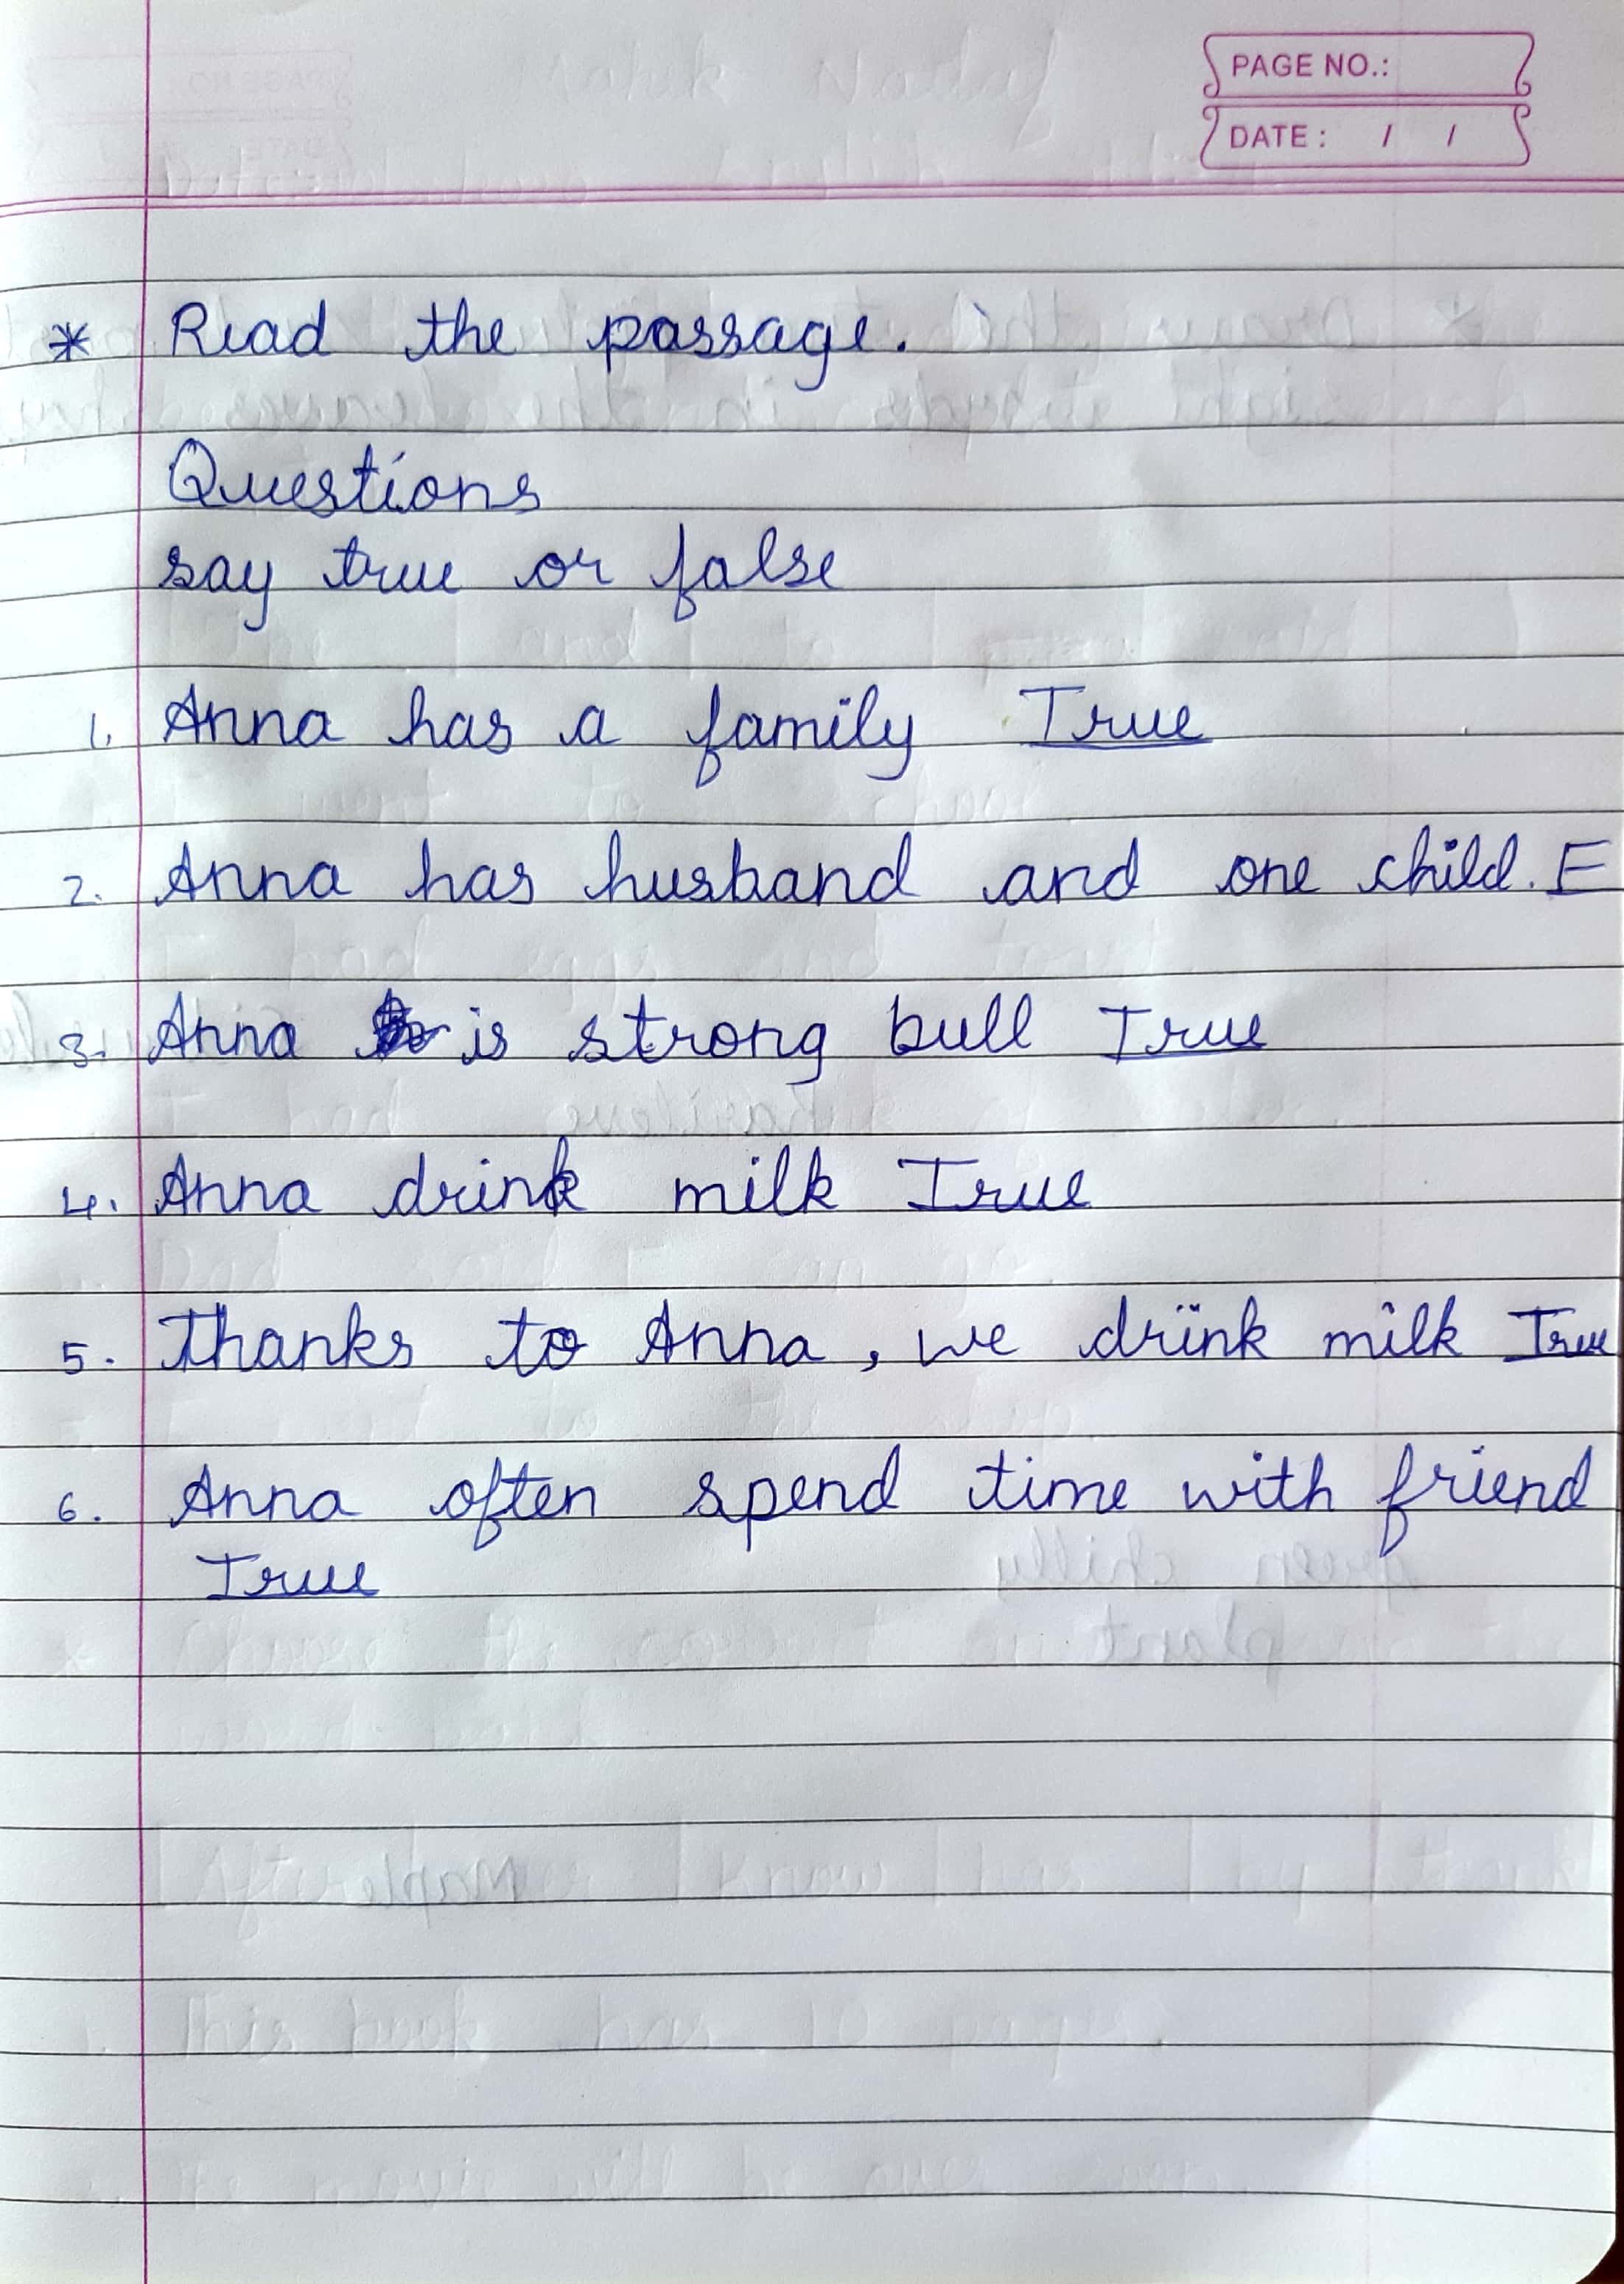 PAGE NO.:
DATE : / /
* Read the passage.
Questions
say true or false
1. Anna has a family True
2. Anna has husband and one child. F
3. Anna is strong bull True
4. Anna drink milk True
5. Thanks to Anna, we drink milk True
6. Anna often spend time with friend
True